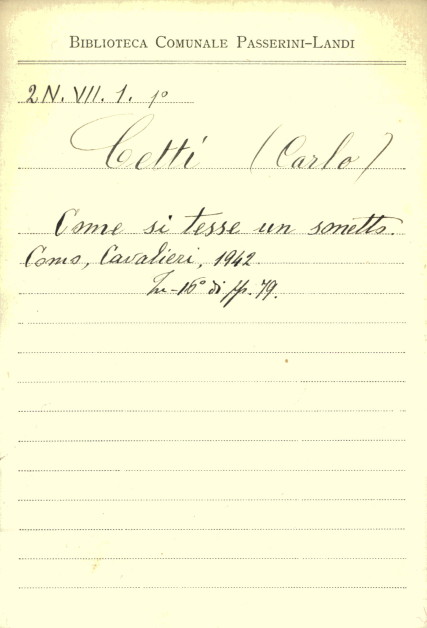 BIBLIOTECA COMUNALE PASSERINI-LANDI
2 N. VII. 1. 1º
Cetti (Carlo)
Come si tesse un sonetto.
Como, Cavalieri, 1942
In-16º di pp. 79.